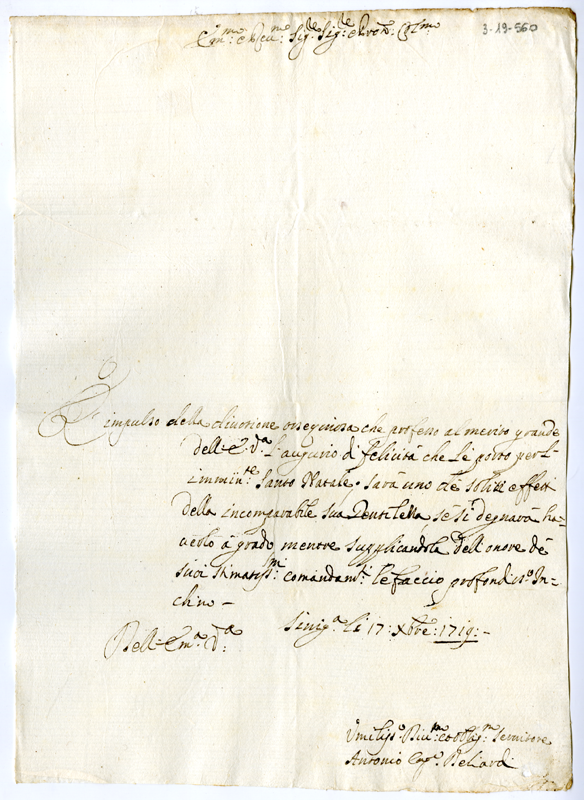 Em.mo e Rev.mo Sig.re Sig.re e Pron. Col.mo
3-19-560
È impulso della divozione ossequiosa che professo al merito grande
dell: E. V.a l'augurio di felicità che le porto per l'
immin.te Santo Natale. Sarà uno de soliti effetti
della incomparabile sua Gentilezza, se si degnarà ha-
verlo à grado, mentre supplicandola dell'onore de
suoi stimatiss.mi comandam.ti le faccio profondiss.o In-
chino -
Dell: Em.a V.a
Sinig.a li 17: Xbre: 1719: -
Umiliss.o Div.mo et obblig.mo Servitore
Antonio Beliardi